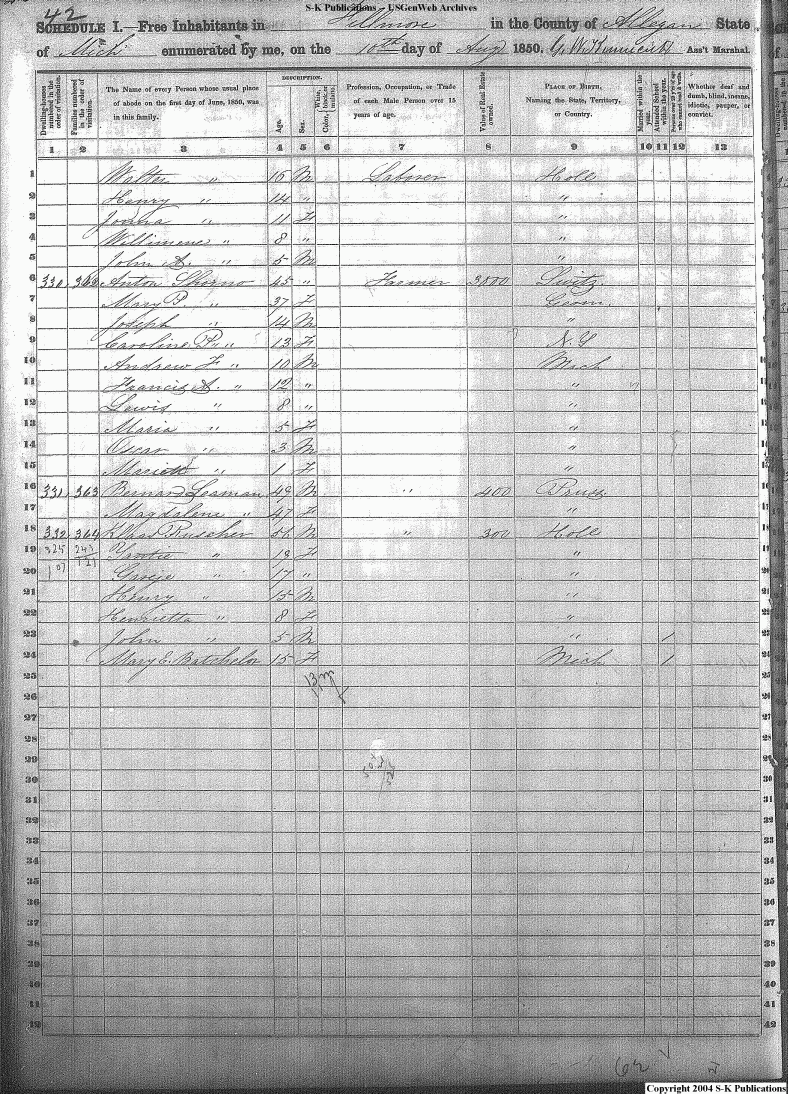 S-K Publications - USGenWeb Archives
42
SCHEDULE I.—Free Inhabitants in Fillmore in the County of Allegan State
of Mich enumerated by me, on the 10th day of Aug 1850. Ass't Marshal.
Dwelling-houses numbered in the order of visitation.
Families numbered in the order of visitation.
The Name of every Person whose usual place of abode on the first day of June, 1850, was in this family.
DESCRIPTION.
Age.
Sex.
White, black, or mulatto.
Color,
Profession, Occupation, or Trade of each Male Person over 15 years of age.
Value of Real Estate owned.
PLACE OF BIRTH, Naming the State, Territory, or Country.
Married within the year.
Attended School within the year.
Persons over 20 y'rs of age who cannot read & write.
Whether deaf and dumb, blind, insane, idiotic, pauper, or convict.
1 2 3 4 5 6 7 8 9 10 11 12 13
1 Walter " 15 M Laborer Holl
2 Henry " 14 " "
3 Joanna " 11 F "
4 " 8 " "
5 John A. " 5 M "
6 330 362 Anton 45 " Farmer 3800 Switz
7 Mary P. " 37 F Germ.
8 Joseph " 14 M "
9 Caroline P. " 13 F N.Y
10 Andrew F " 10 M Mich
11 Francis A. " 12 " "
12 Lewis " 8 " "
13 Maria " 5 F "
14 Oscar " 3 M "
15 " 1 F "
16 331 363 Bernard 49 M " 400 Pruss
17 Magdalene " 47 F "
18 332 364 Ruscher 56 M " 300 Holl
19 325 243 " 18 F "
20 107 121 " 17 " "
21 Henry " 15 M "
22 Henrietta " 8 F "
23 John " 5 M " 1
24 Mary E. Batchelor 15 F Mich 1
25 13 m
26
27
28
29
30
31
32
33
34
35
36
37
38
39
40
41
42
62
Copyright 2004 S-K Publications